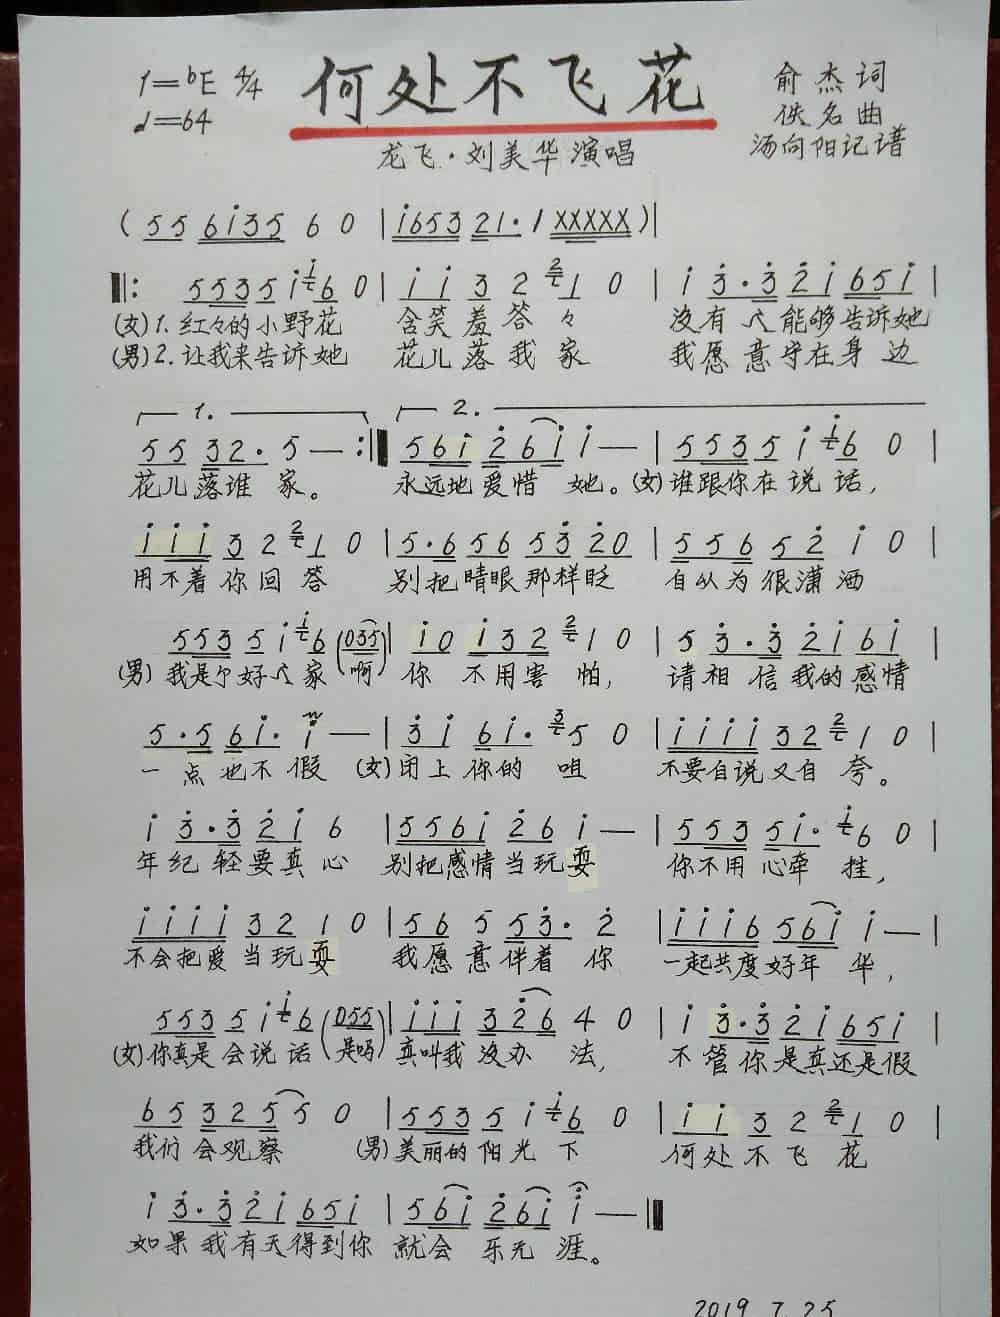 1=bE 4/4 何处不飞花 俞杰词
♩=64 佚名曲
龙飞·刘美华演唱 汤向阳记谱
( 5 5 6 i 3 5 6 0 | i 6 5 3 2 1 · 1 X X X X X ) |
‖: 5 5 3 5 i i 6 0 | i i 3 2 2 1 0 | i 3 · 3 2 i 6 5 i |
(女) 1. 红々的小野花 含笑羞答々 没有个能够告诉她
(男) 2. 让我来告诉她 花儿落我家 我愿意守在身边
1. 2.
5 5 3 2 · 5 — :‖ 5 6 i 2 6 i i — | 5 5 3 5 i i 6 0 |
花儿落谁家。 永远地爱惜她。(女) 谁跟你在说话,
i i i 3 2 2 1 0 | 5 · 6 5 6 5 3 2 0 | 5 5 6 5 2 i 0 |
用不着你回答 别把睛眼那样眨 自以为很潇洒
5 5 3 5 i i 6 (0 3 5) | i 0 i 3 2 2 1 0 | 5 3 · 3 2 i 6 i |
(男) 我是个好人家 (啊) 你不用害怕, 请相信我的感情
5 · 5 6 i · i — | 3 i 6 i · 3 5 0 | i i i i 3 2 2 1 0 |
一点也不假 (女) 闭上你的咀 不要自说又自夸。
i 3 · 3 2 i 6 | 5 5 6 i 2 6 i — | 5 5 3 5 i · i 6 0 |
年纪轻要真心 别把感情当玩耍 你不用心牵挂,
i i i i 3 2 1 0 | 5 6 5 5 3 · 2 | i i i 6 5 6 i i — |
不会把爱当玩耍 我愿意伴着你 一起共度好年华,
5 5 3 5 i i 6 (0 5 5) | i i i 3 2 6 4 0 | i 3 · 3 2 i 6 5 i |
(女) 你真是会说话 (是吗) 真叫我没办法, 不管你是真还是假
6 5 3 2 5 5 0 | 5 5 3 5 i i 6 0 | i i 3 2 2 1 0 |
我们会观察 (男) 美丽的阳光下 何处不飞花
i 3 · 3 2 i 6 5 i | 5 6 i 2 6 i i — ‖
如果我有天得到你 就会乐无涯。
2019.7.25